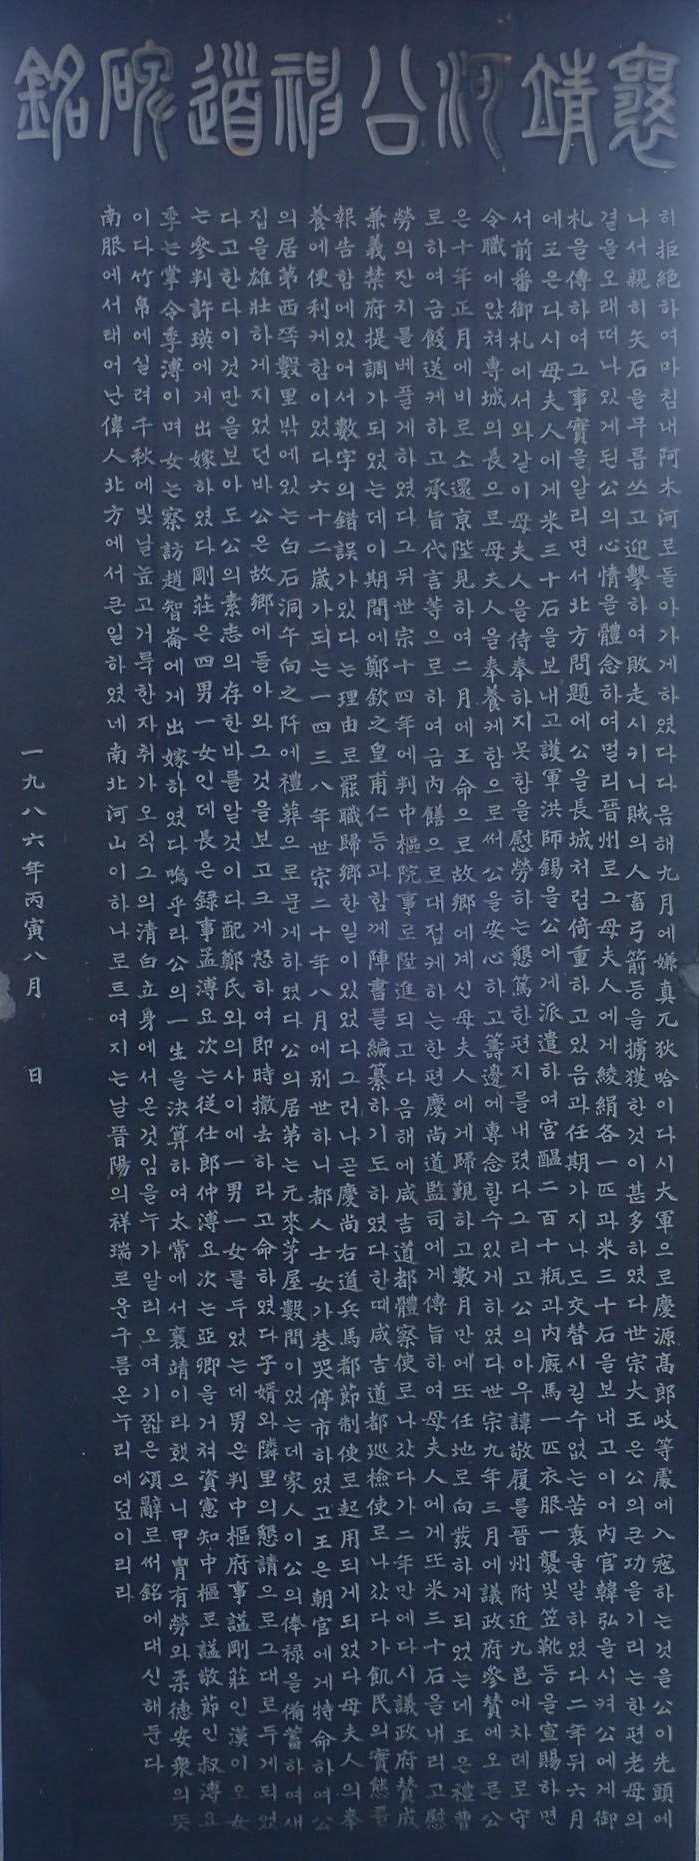 襄靖河公神道碑銘
히拒絶하여마침내阿木河로돌아가게하였다다음해九月에嫌真兀狄哈이다시大軍으로慶源高郎岐等處에入寇하는것을公이先頭에
나서親히矢石을무릅쓰고迎擊하여敗走시키니賊의人畜弓箭등을擄獲한것이甚多하였다世宗大王은公의큰功을기리는한편老母의
곁을오래떠나있게된公의心情을體念하여멀리晉州로그母夫人에게綾絹各一匹과米三十石을보내고이어內官韓弘을시켜公에게御
札을傳하여그事實을알리면서北方問題에公을長城처럼倚重하고있음과任期가지나도交替시킬수없는苦衷을말하였다二年뒤六月
에王은다시母夫人에게米三十石을보내고護軍洪師錫을公에게派遣하여宮醞二百十甁과內廐馬一匹衣服一襲및笠靴등을宣賜하면
서前番御札에서와같이母夫人을侍奉하지못함을慰勞하는懇篤한편지를내렸다그리고公의아우諱敬履를晉州附近九邑에차례로守
令職에앉혀專城의長으로母夫人을奉養케함으로써公을安心하고籌邊에專念할수있게하였다世宗九年三月에議政府參贊에오른公
은十年正月에비로소還京陛見하여二月에王命으로故鄕에계신母夫人에게歸覲하고數月만에또任地로向發하게되었는데王은禮曹
로하여금餞送케하고承旨代言等으로하여금內饍으로대접케하는한편慶尙道監司에게傳旨하여母夫人에게또米三十石을내리고慰
勞의잔치를베풀게하였다그뒤世宗十四年에判中樞院事로陞進되고다음해에咸吉道都體察使로나갔다가二年만에다시議政府贊成
兼義禁府提調가되었는데이期間에鄭欽之皇甫仁등과함께陣書를編纂하기도하였다한때咸吉道都巡檢使로나갔다가飢民의實態를
報告함에있어서數字의錯誤가있다는理由로罷職歸鄕한일이있었다그러나곧慶尙右道兵馬都節制使로起用되게되었다母夫人의奉
養에便利케함이었다六十二歲가되는一四三八年世宗二十年八月에別世하니都人士女가巷哭停市하였고王은朝官에게特命하여公
의居第西쪽數里밖에있는白石洞午向之阡에禮葬으로묻게하였다公의居第는元來茅屋數間이었는데家人이公의俸祿을備蓄하여새
집을雄壯하게지었던바公은故鄕에돌아와그것을보고크게怒하여即時撤去하라고命하였다子婿와隣里의懇請으로그대로두게되었
다고한다이것만을보아도公의素志의存한바를알것이다配鄭氏와의사이에一男一女를두었는데男은判中樞府事諡剛莊인漢이오女
는參判許瑛에게出嫁하였다剛莊은四男一女인데長은錄事孟溥요次는從仕郎仲溥요次는亞卿을거쳐資憲知中樞로諡敬節인叔溥요
季는掌令季溥이며女는察訪趙智崙에게出嫁하였다嗚乎라公의一生을決算하여太常에서襄靖이라했으니甲冑有勞와柔德安衆의뜻
이다竹帛에실려千秋에빛날높고거룩한자취가오직그의清白立身에서온것임을누가알리오여기짧은頌辭로써銘에대신해둔다
南服에서태어난偉人北方에서큰일하였네南北河山이하나로트여지는날晉陽의祥瑞로운구름온누리에덮이리라
一九八六年丙寅八月 日